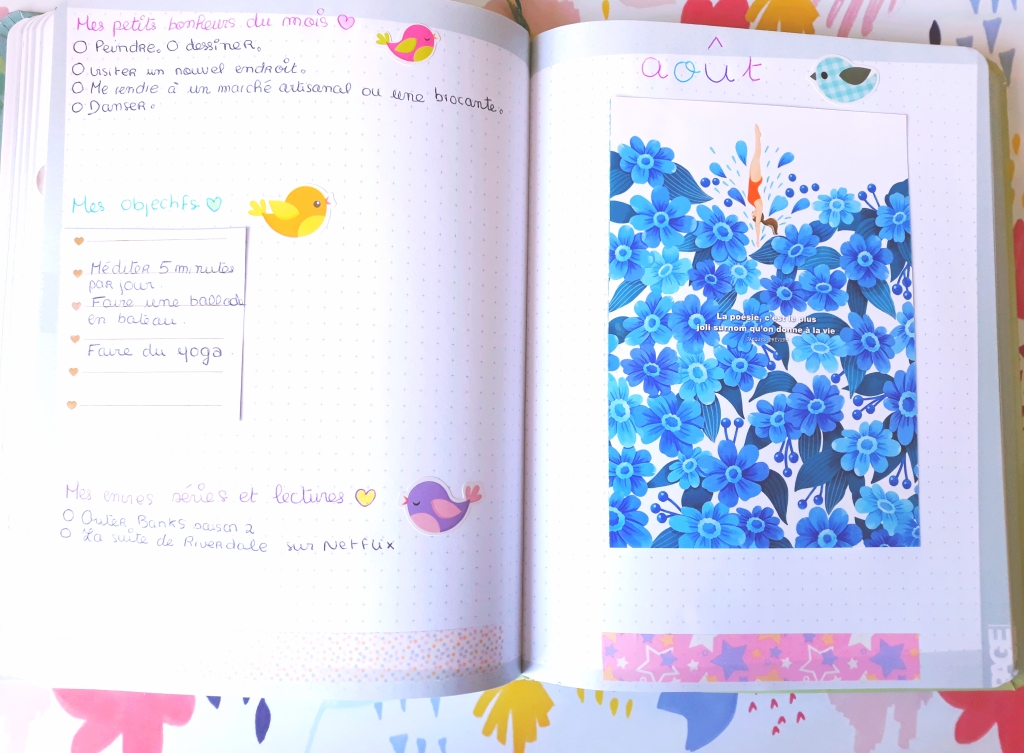 Mes petits bonheurs du mois
Peindre. O dessiner.
visiter un nouvel endroit.
Me rendre à un marché artisanal ou une brocante.
Danser.
Mes objectifs
Méditer 5 minutes
par jour
Faire une ballade
en bateau.
Faire du yoga.
Mes envies séries et lectures
Outer Banks saison 2
La suite de Riverdale sur Netflix
août
La poésie, c'est le plus
joli surnom qu'on donne à la vie
JACQUES PRÉVERT